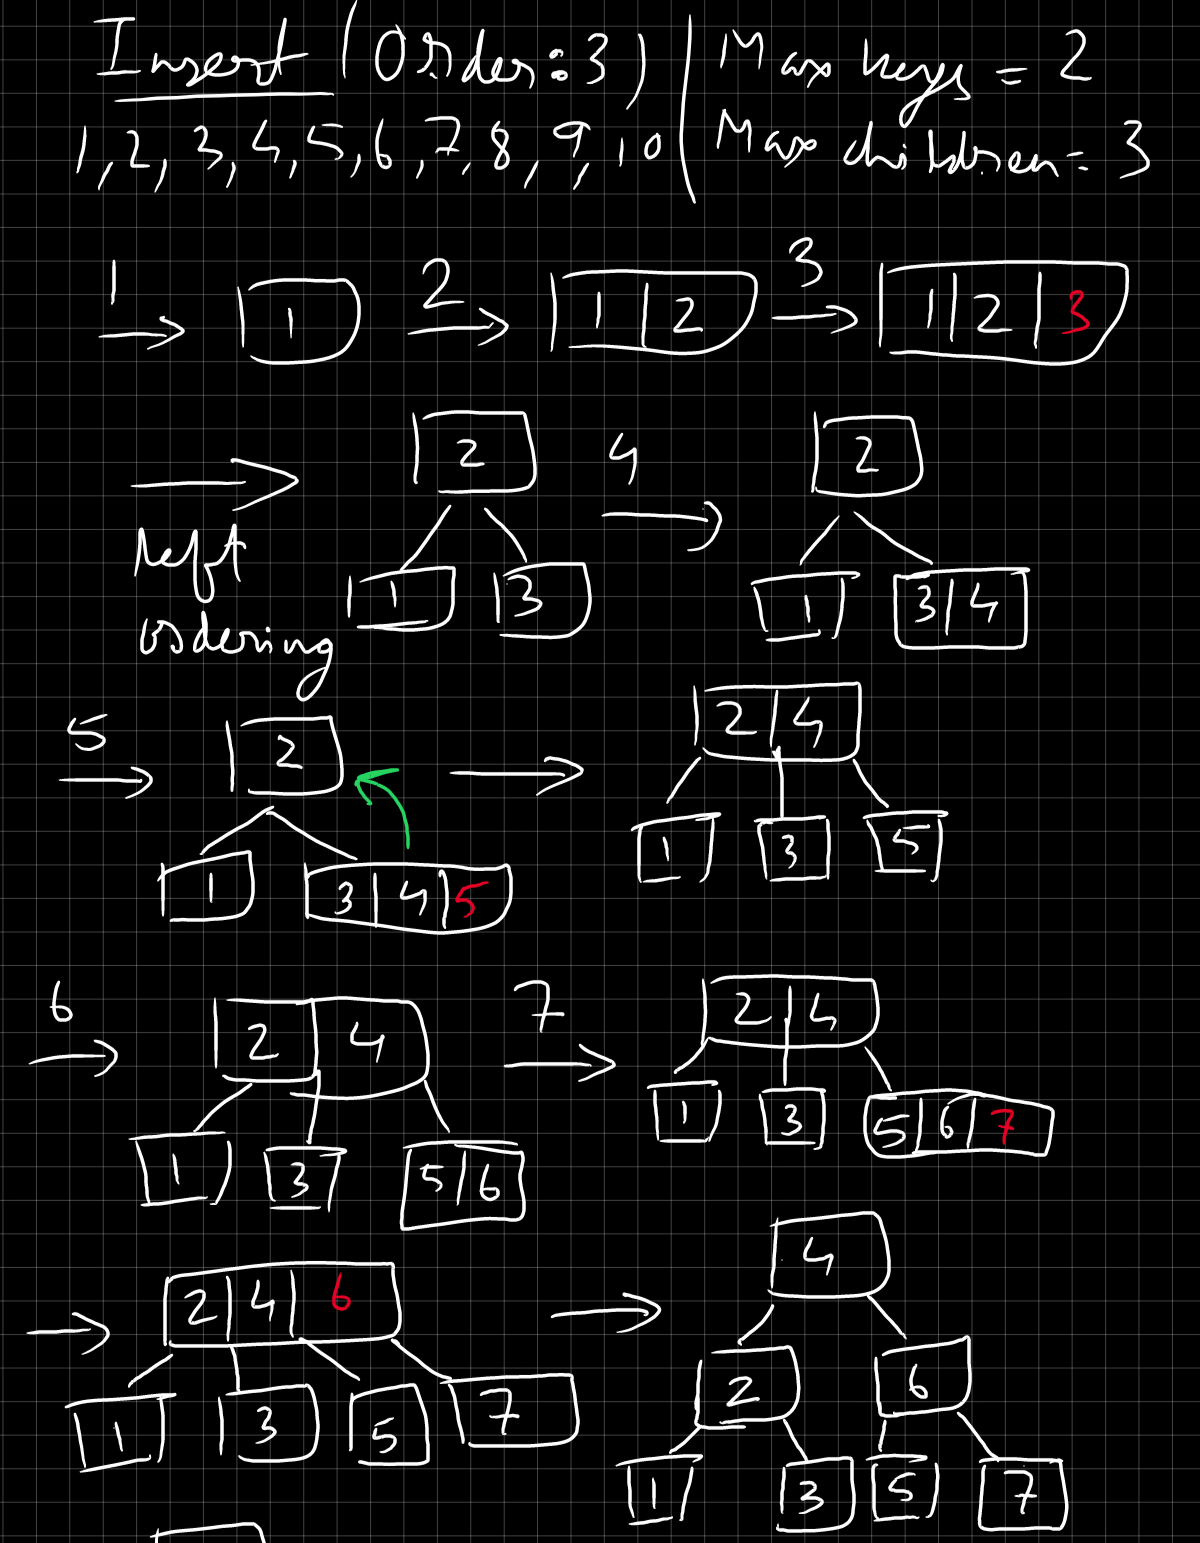 Insert (Order: 3) | Max keys = 2
1, 2, 3, 4, 5, 6, 7, 8, 9, 10 | Max children = 3
1 1 2 1 2 3 1 2 3
2 4 2
left
ordering
1 3 1 3 4
5 2 2 4
1 3 4 5 1 3 5
6 2 4 7 2 4
1 3 5 6 1 3 5 6 7
2 4 6 4
1 3 5 7 2 6
1 3 5 7